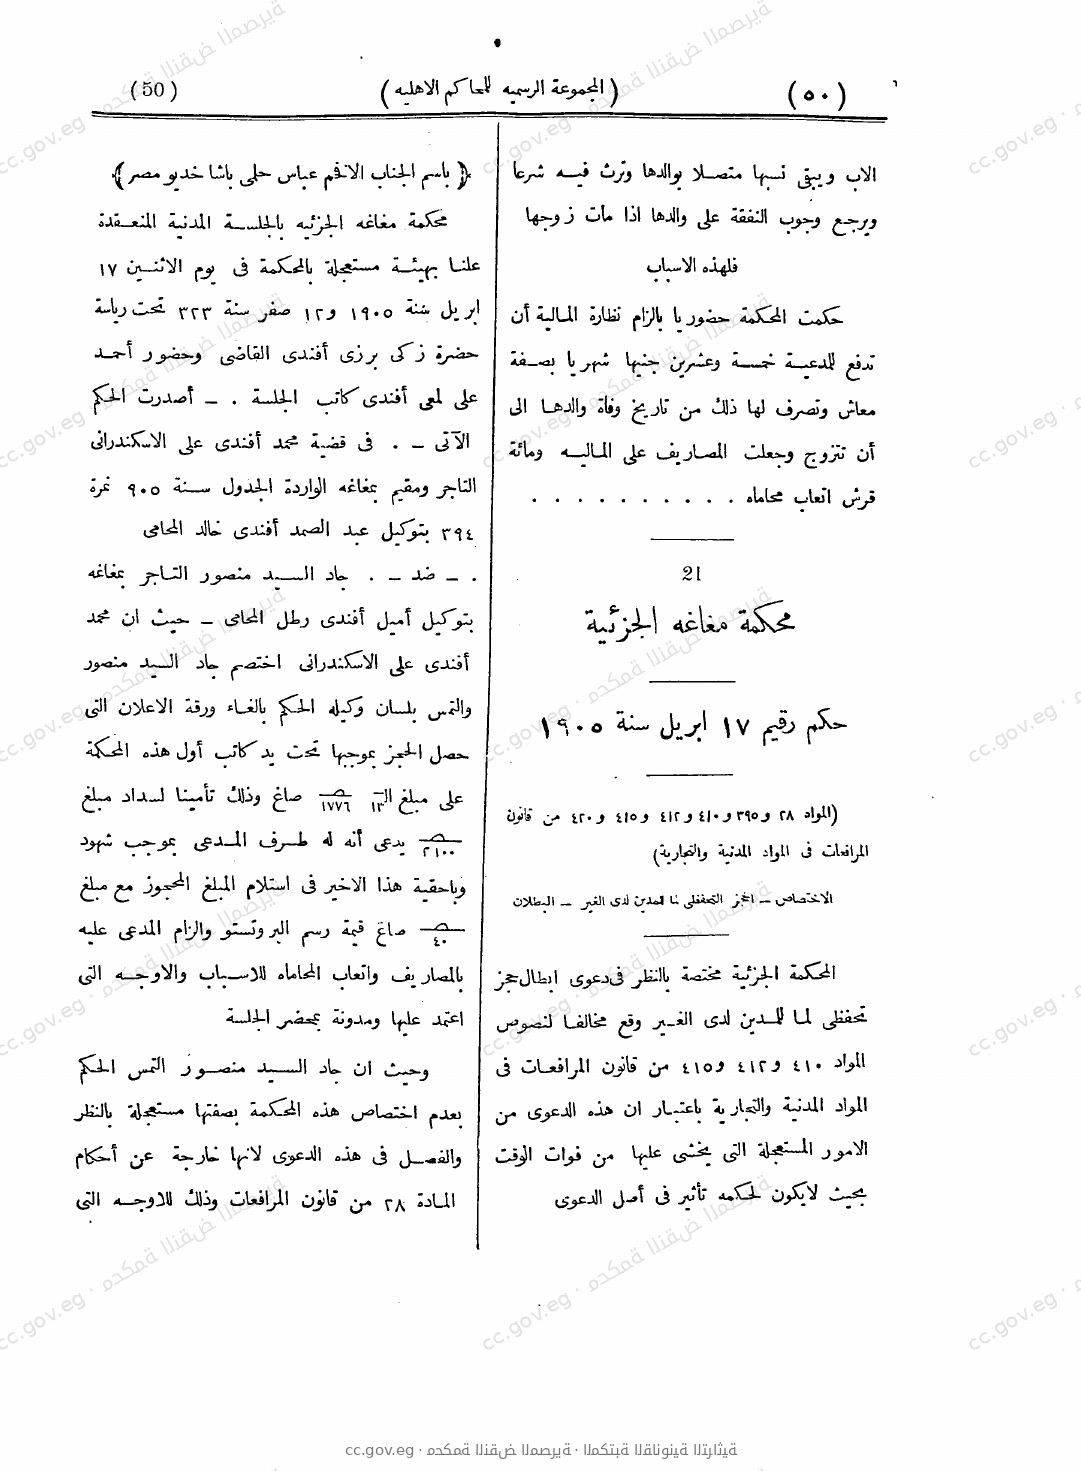 (٥٠)
(المجموعة الرسميه للمحاكم الاهليه)
(50)
الاب ويبقى نسبها متصلا بوالدها وترث فيه شرعا
ويرجع وجوب النفقة على والدها اذا مات زوجها
فلهذه الاسباب
حكمت المحكمة حضوريا بالزام نظارة المالية أن
تدفع للمدعية خمسة وعشرين جنيها شهريا بصفة
معاش وتصرف لها ذلك من تاريخ وفاة والدها الى
أن تتزوج وجعلت المصاريف على الماليه ومائة
قرش اتعاب محاماه . . . . . . . . . .
21
محكمة مغاغه الجزئية
حكم رقيم ١٧ ابريل سنة ١٩٠٥
(المواد ٢٨ و٣٩٥ و٤١٠ و٤١٢ و٤١٥ و٤٢٠ من قانون
المرافعات فى المواد المدنية والتجارية)
الاختصاص – الحجز التحفظى لما للمدين لدى الغير – البطلان
المحكمة الجزئية مختصة بالنظر فى دعوى ابطال حجز
تحفظى لما للمدين لدى الغير وقع مخالفا لنصوص
المواد ٤١٠ و٤١٢ و٤١٥ من قانون المرافعات فى
المواد المدنية والتجارية باعتبار ان هذه الدعوى من
الامور المستعجلة التى يخشى عليها من فوات الوقت
بحيث لايكون لحكمه تأثير فى أصل الدعوى
﴿باسم الجناب الافخم عباس حلمى باشا خديو مصر﴾
محكمة مغاغه الجزئيه بالجلسة المدنية المنعقدة
علنا بهيئة مستعجلة بالمحكمة فى يوم الاثنين ١٧
ابريل سنة ١٩٠٥ و١٢ صفر سنة ٣٢٣ تحت رياسة
حضرة زكى برزى أفندى القاضى وحضور أحمد
على لمعى أفندى كاتب الجلسة . – أصدرت الحكم
الآتى – . فى قضية محمد أفندى على الاسكندرانى
التاجر ومقيم بمغاغه الواردة الجدول سنة ٩٠٥ نمرة
٣٩٤ بتوكيل عبد الصمد أفندى خالد المحامى
. – ضد – . جاد السيد منصور التاجر بمغاغه
بتوكيل أميل أفندى رطل المحامى – حيث ان محمد
أفندى على الاسكندرانى اختصم جاد السيد منصور
والتمس بلسان وكيله الحكم بالغاء ورقة الاعلان التى
حصل الحجز بموجبها تحت يد كاتب أول هذه المحكمة
على مبلغ ١٧٧٦ صاغ وذلك تأمينا لسداد مبلغ
٢١٠٠ يدعى أنه له طرف المدعى بموجب شهود
وباحقية هذا الاخير فى استلام المبلغ المحجوز مع مبلغ
٤٠ صاغ قيمة رسم البروتستو والزام المدعى عليه
بالمصاريف واتعاب المحاماه للاسباب والاوجه التى
اعتمد عليها ومدونة بمحضر الجلسة
وحيث ان جاد السيد منصور التمس الحكم
بعدم اختصاص هذه المحكمة بصفتها مستعجلة بالنظر
والفصل فى هذه الدعوى لانها خارجة عن أحكام
المادة ٢٨ من قانون المرافعات وذلك للاوجه التى
cc.gov.eg · محكمة النقض المصرية · المكتبة القانونية التراثية